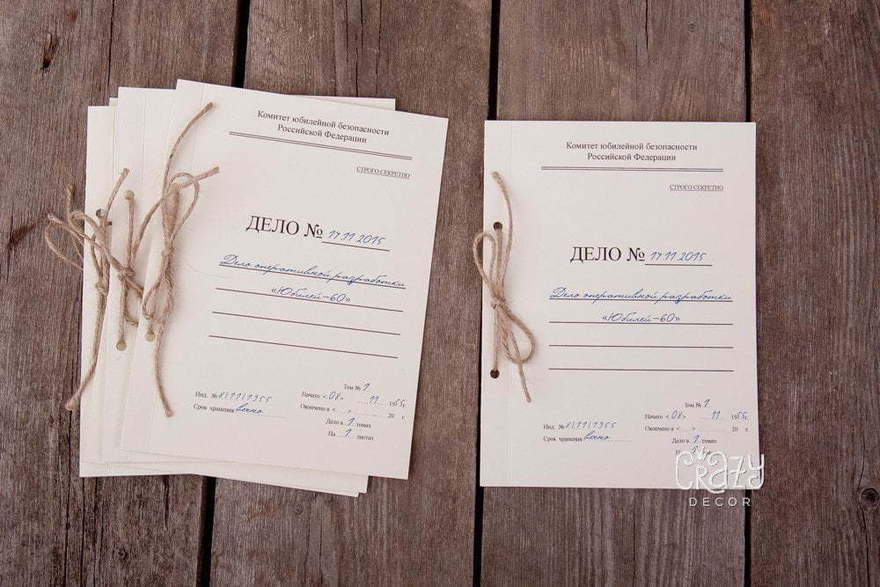 Комитет юбилейной безопасности
Российской Федерации
СТРОГО СЕКРЕТНО
ДЕЛО № 17.11.2015
Дело оперативной разработки
«Юбилей-60»
Том № 1
Инд. № 817111955 Начато «08» 11 1955г.
Срок хранения вечно Окончено «...» 20 г.
Дело в 1 томах
На 1 листах
Комитет юбилейной безопасности
Российской Федерации
СТРОГО СЕКРЕТНО
ДЕЛО № 17.11.2015
Дело оперативной разработки
«Юбилей-60»
Том № 1
Инд. № 817111955 Начато «08» 11 1955г.
Срок хранения вечно Окончено «...» 20 г.
Дело в 1 томах
CRAZY
DECOR